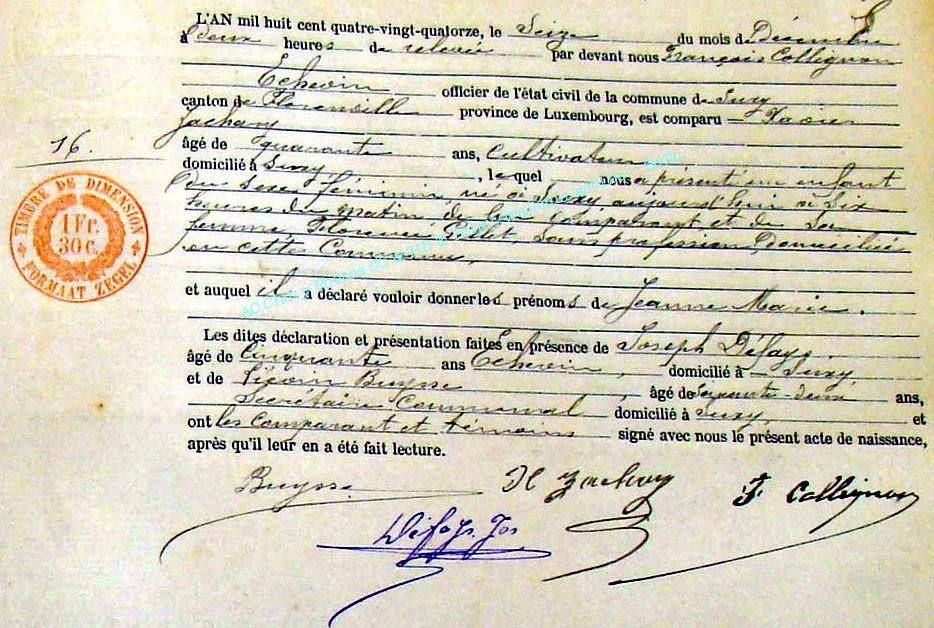 L'AN mil huit cent quatre-vingt-quatorze, le Seize du mois de Décembre
à deux heures de relevée par devant nous François Collignon
Echevin officier de l'état civil de la commune de Suxy
canton de Florenville province de Luxembourg, est comparu Xavier
Zachary
16.
âgé de quarante ans, Cultivateur
domicilié à Suxy, lequel nous a présenté un enfant
du sexe féminin, né à Suxy aujourd'hui à six
heures du matin de lui comparant et de sa
femme, Florence Gillet, sans profession, domiciliée
en cette Commune,
TIMBRE DE DIMENSION
1 Fr.
30 c.
FORMAAT ZEGEL
et auquel il a déclaré vouloir donner les prénoms de Jeanne Marie.
Les dites déclaration et présentation faites en présence de Joseph Défays,
âgé de Cinquante ans Echevin, domicilié à Suxy,
et de Buysse, âgé de deux ans,
Secrétaire Communal domicilié à Suxy, et
ont les Comparant et témoins signé avec nous le présent acte de naissance,
après qu'il leur en a été fait lecture.
Buysse X Zachary F. Collignon
Défays. Jos.